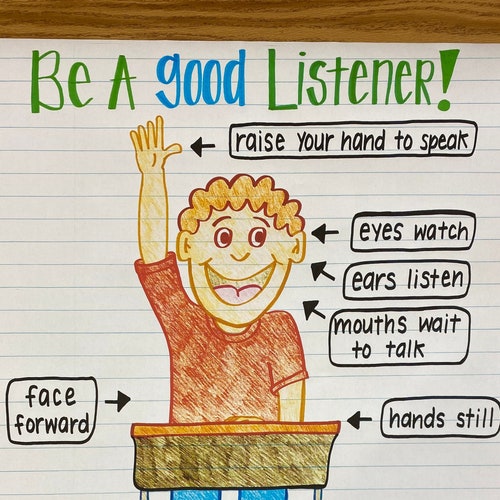 Be A good Listener!
raise your hand to speak
eyes watch
ears listen
mouths wait
to talk
face
forward
hands still